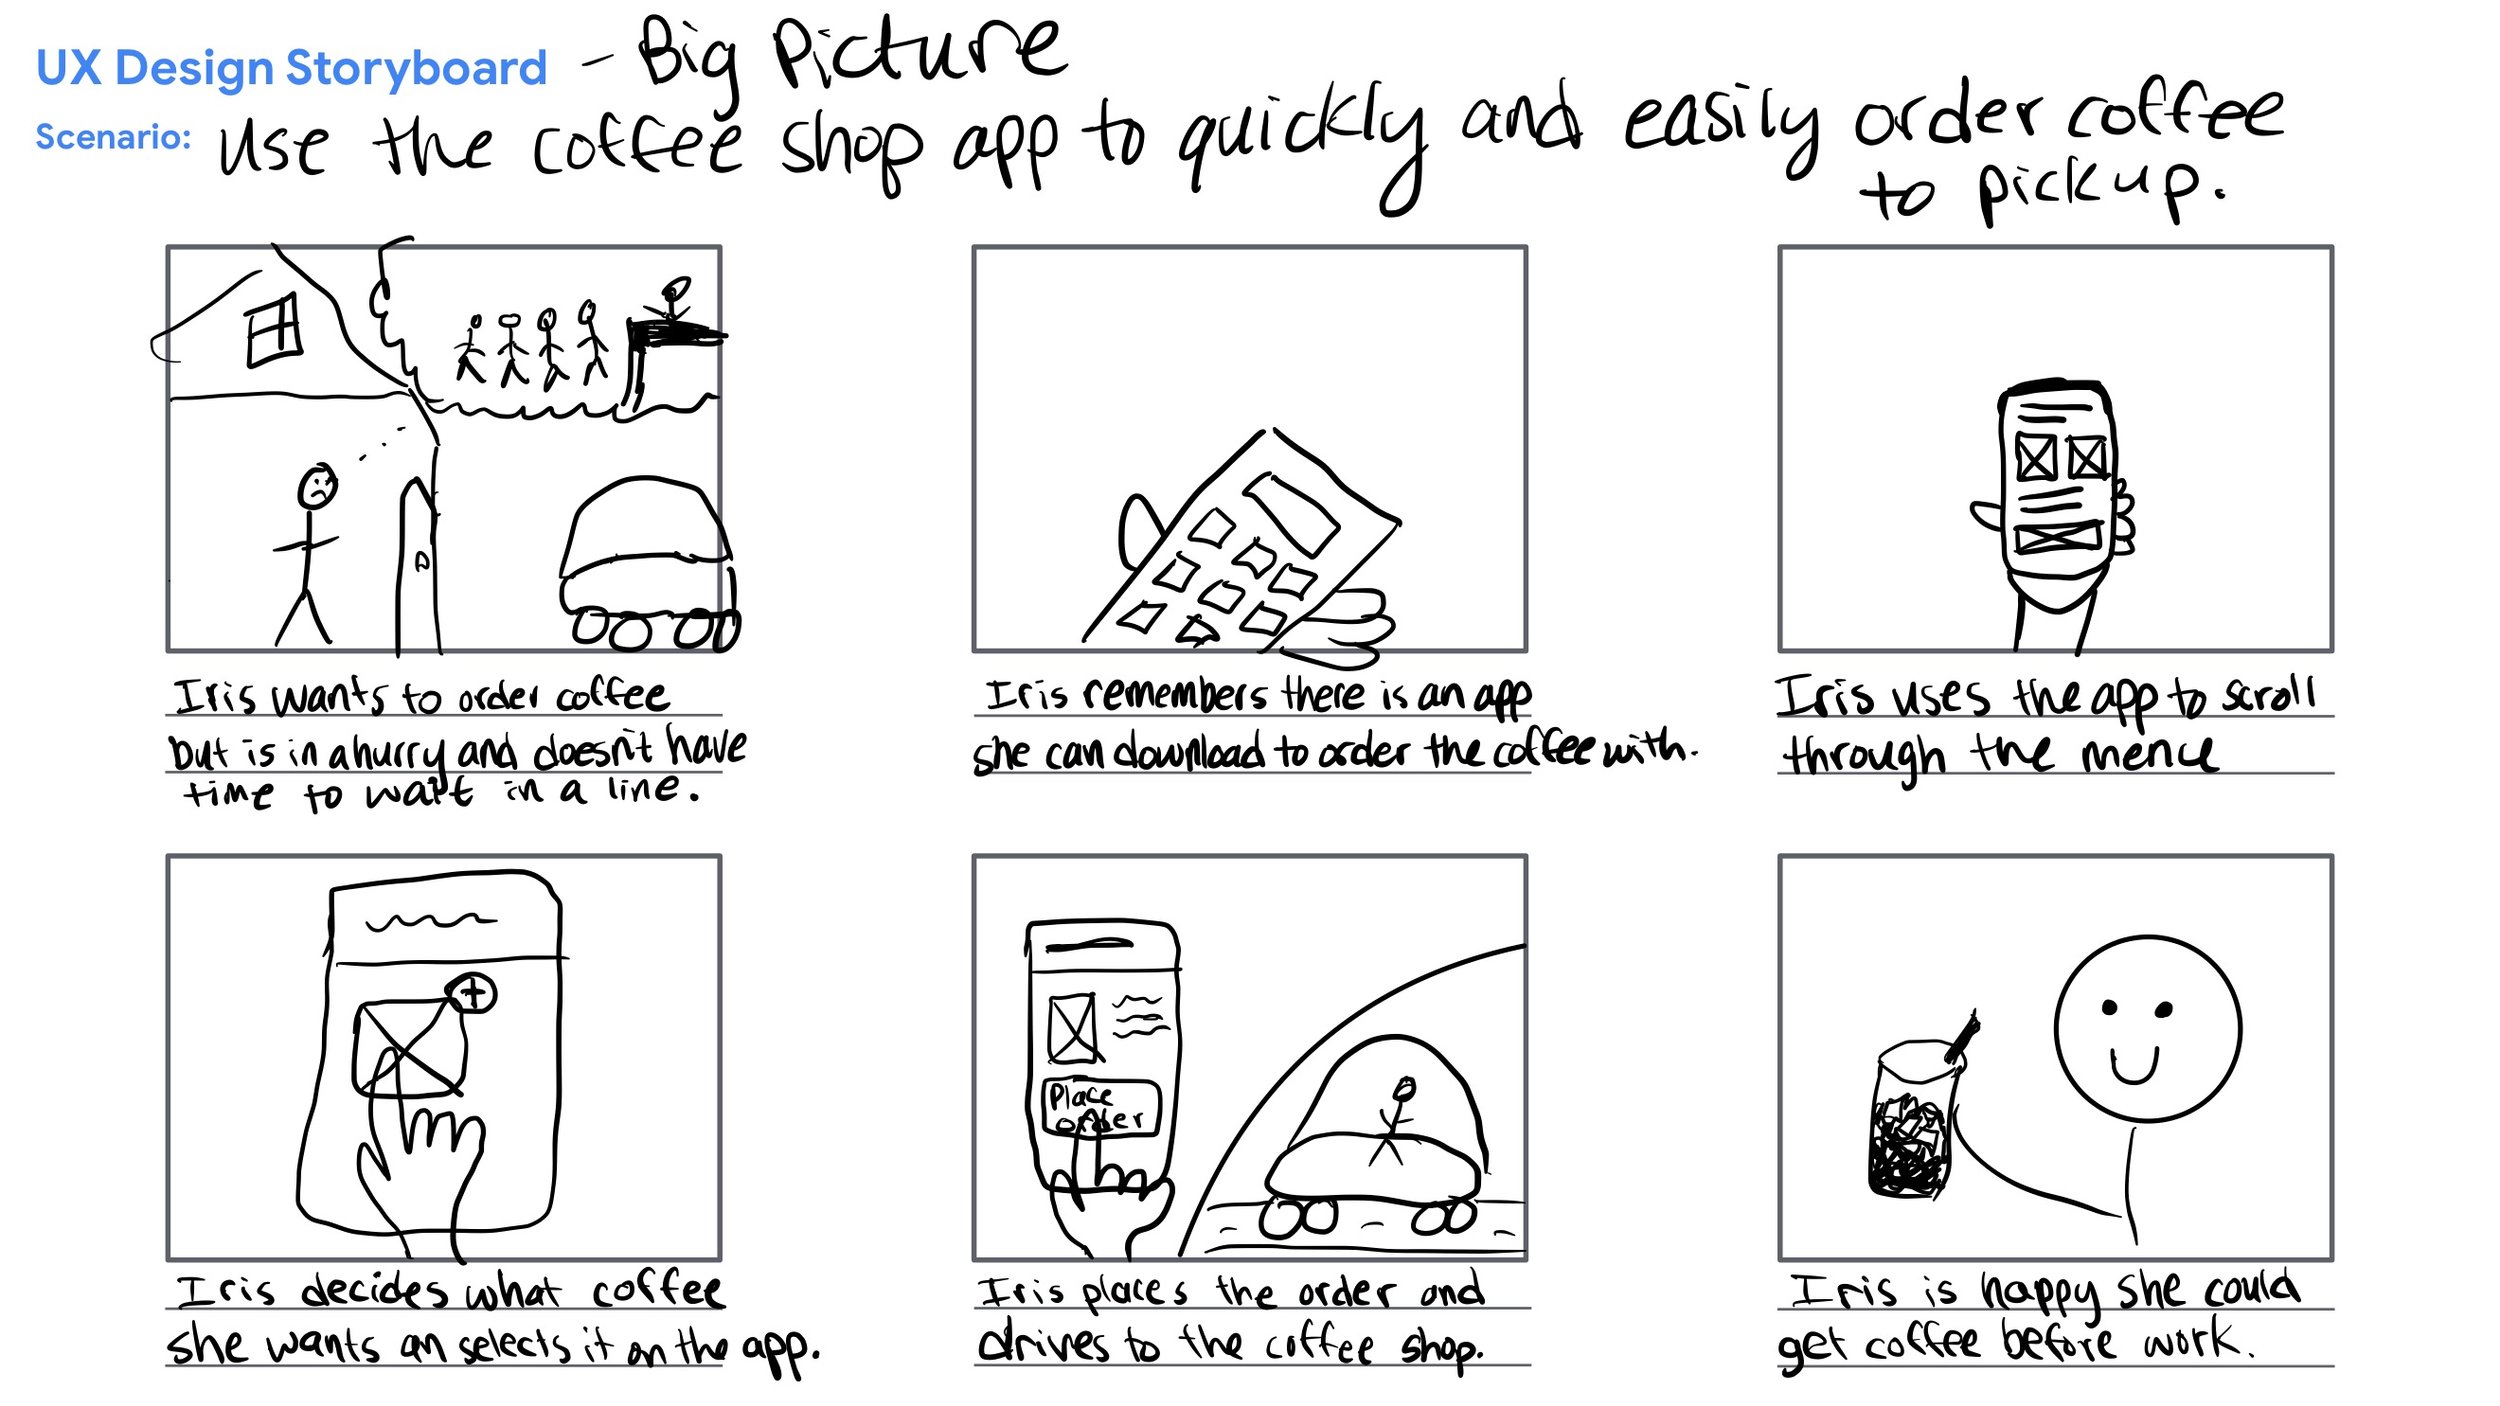 UX Design Storyboard - Big Picture
Scenario: Use the coffee shop app to quickly and easily order coffee
to pickup.
Iris wants to order coffee
but is in a hurry and doesn't have
time to wait in a line.
Iris remembers there is an app
she can download to order the coffee with.
Iris uses the app to scroll
through the menue
Iris decides what coffee
she wants an selects it on the app.
Place
order
Iris places the order and
drives to the coffee shop.
Iris is happy she could
get coffee before work.